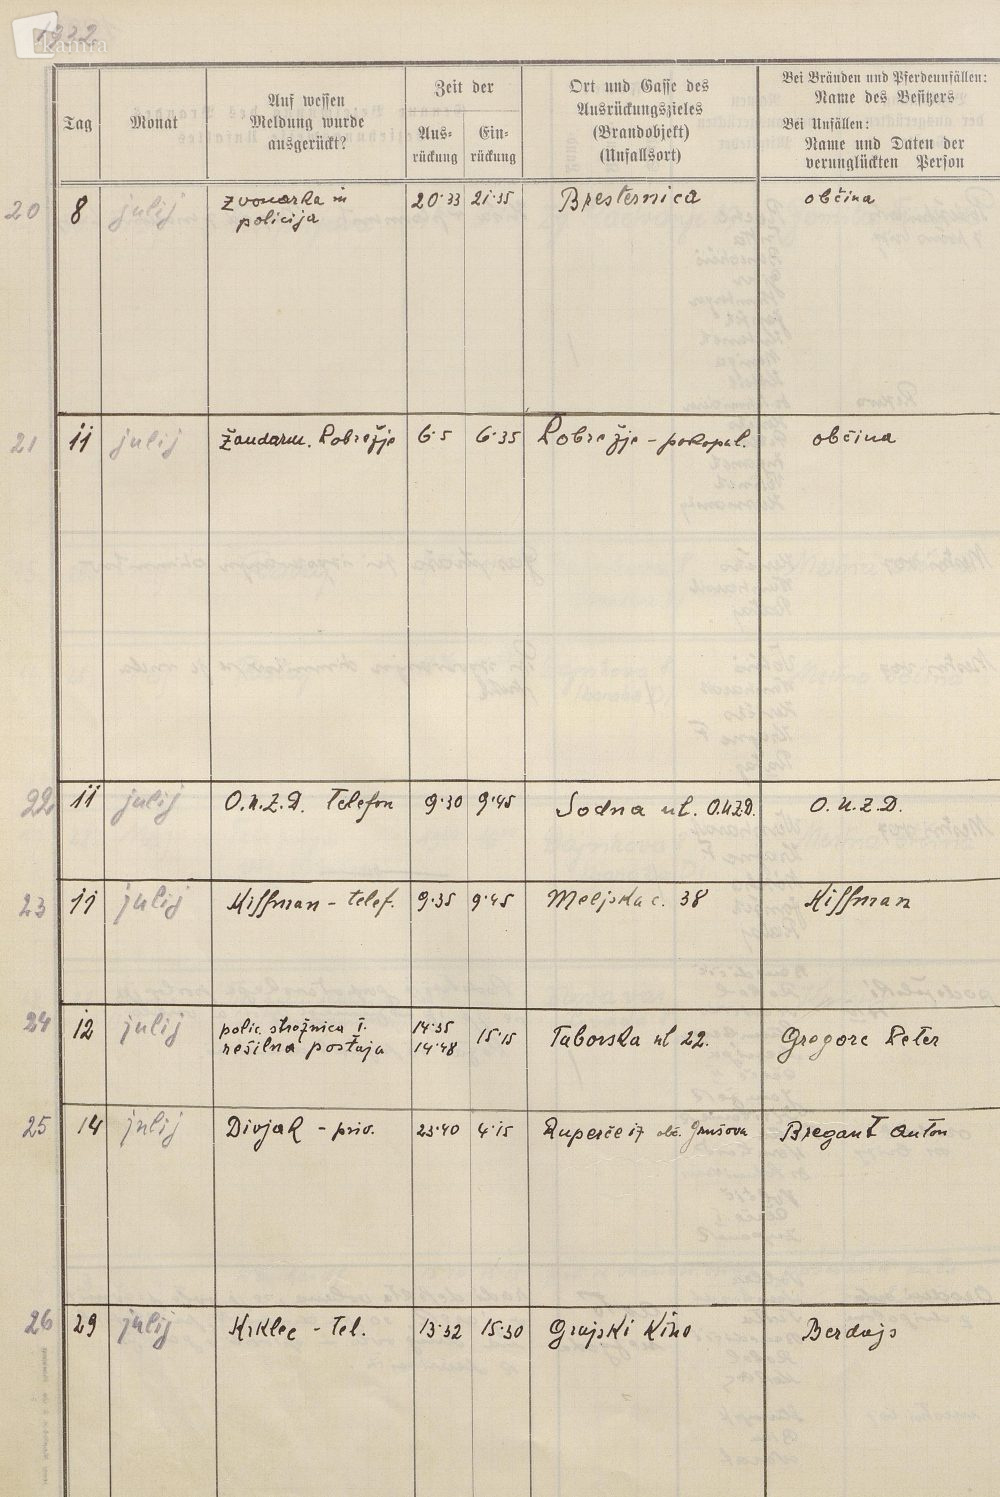 1932
kamra
Tag
Monat
Auf wessen
Meldung wurde
ausgerückt?
Zeit der
Aus-
rückung
Ein-
rückung
Ort und Gasse des
Ausrückungszieles
(Brandobjekt)
(Unfallsort)
Bei Bränden und Pferdeunfällen:
Name des Besitzers
Bei Unfällen:
Name und Daten der
verunglückten Person
20 8 julij zvonarka in 20·33 21·35 Bresternica občina
policija
21 11 julij žandarm. Pobrežje 6·5 6·35 Pobrežje - pokopal. občina
22 11 julij O.U.Z.D. Telefon 9·30 9·45 Sodna ul. O.U.Z.D. O.U.Z.D.
23 11 julij Kiffman - telef. 9·35 9·45 Meljska c. 38 Kiffman
24 12 julij polic. stražnica I. 14·35 15·15 Taborska ul 22. Gregorc Peter
rešilna postaja 14·48
25 14 julij Divjak - priv. 23·40 4·15 Ruperče 17 obč. Grušova Bregant Anton
26 29 julij Krklec - Tel. 13·32 15·30 Grajski Kino Berdajs